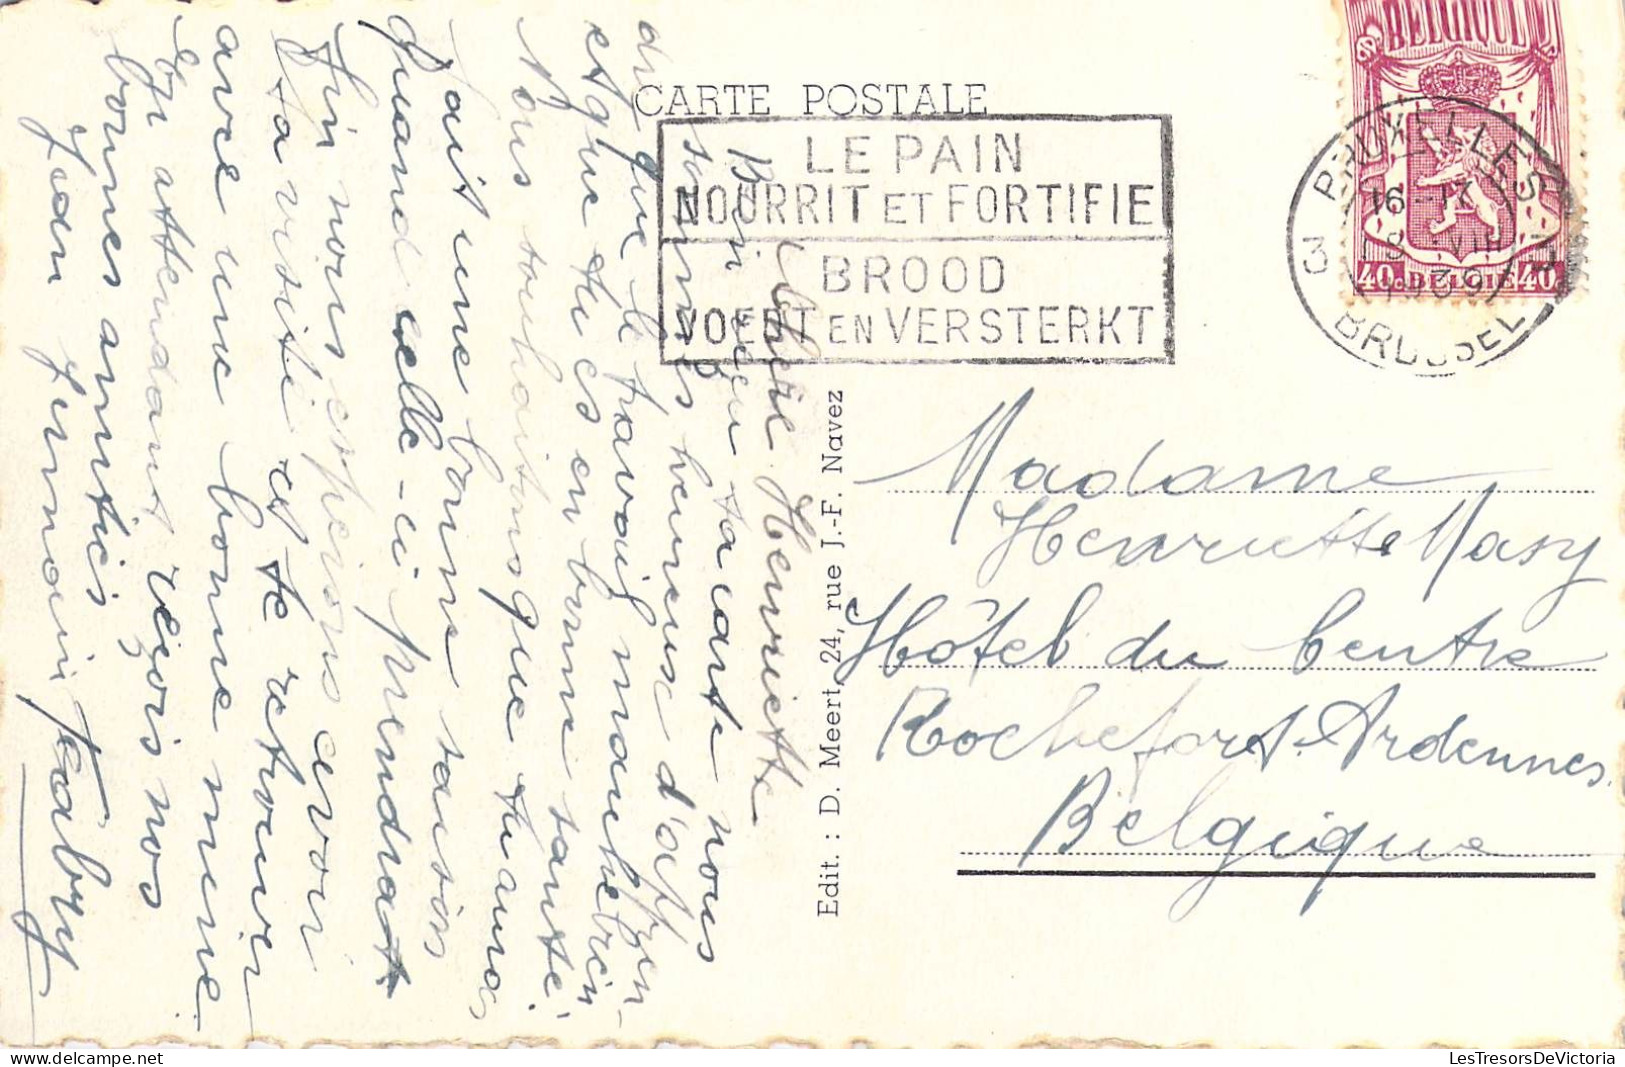 CARTE POSTALE
LE PAIN
NOURRIT ET FORTIFIE
BROOD
VOEDT EN VERSTERKT
BELGIQUE
40c BELGIE 40
3 BRUXELLES
16-IX
18
1939
BRUSSEL
Chère Henriette
Bien reçu ta carte nous
sommes heureux d'appren-
dre que le travail marche bien
et que tu es en bonne santé.
Nous souhaitons que tu auras
fait une bonne saison
quand celle-ci prendrat
fin nous esperions avoir
ta visite et te retrouver
avec une bonne mine.
En attendant reçois nos
bonnes amitiés
Jean Germain Fabry
Edit. : D. Meert, 24, rue J.-F. Navez
Madame
Henriette Masy
Hôtel du Centre
Rochefort. Ardennes.
Belgique
LesTresorsDeVictoria